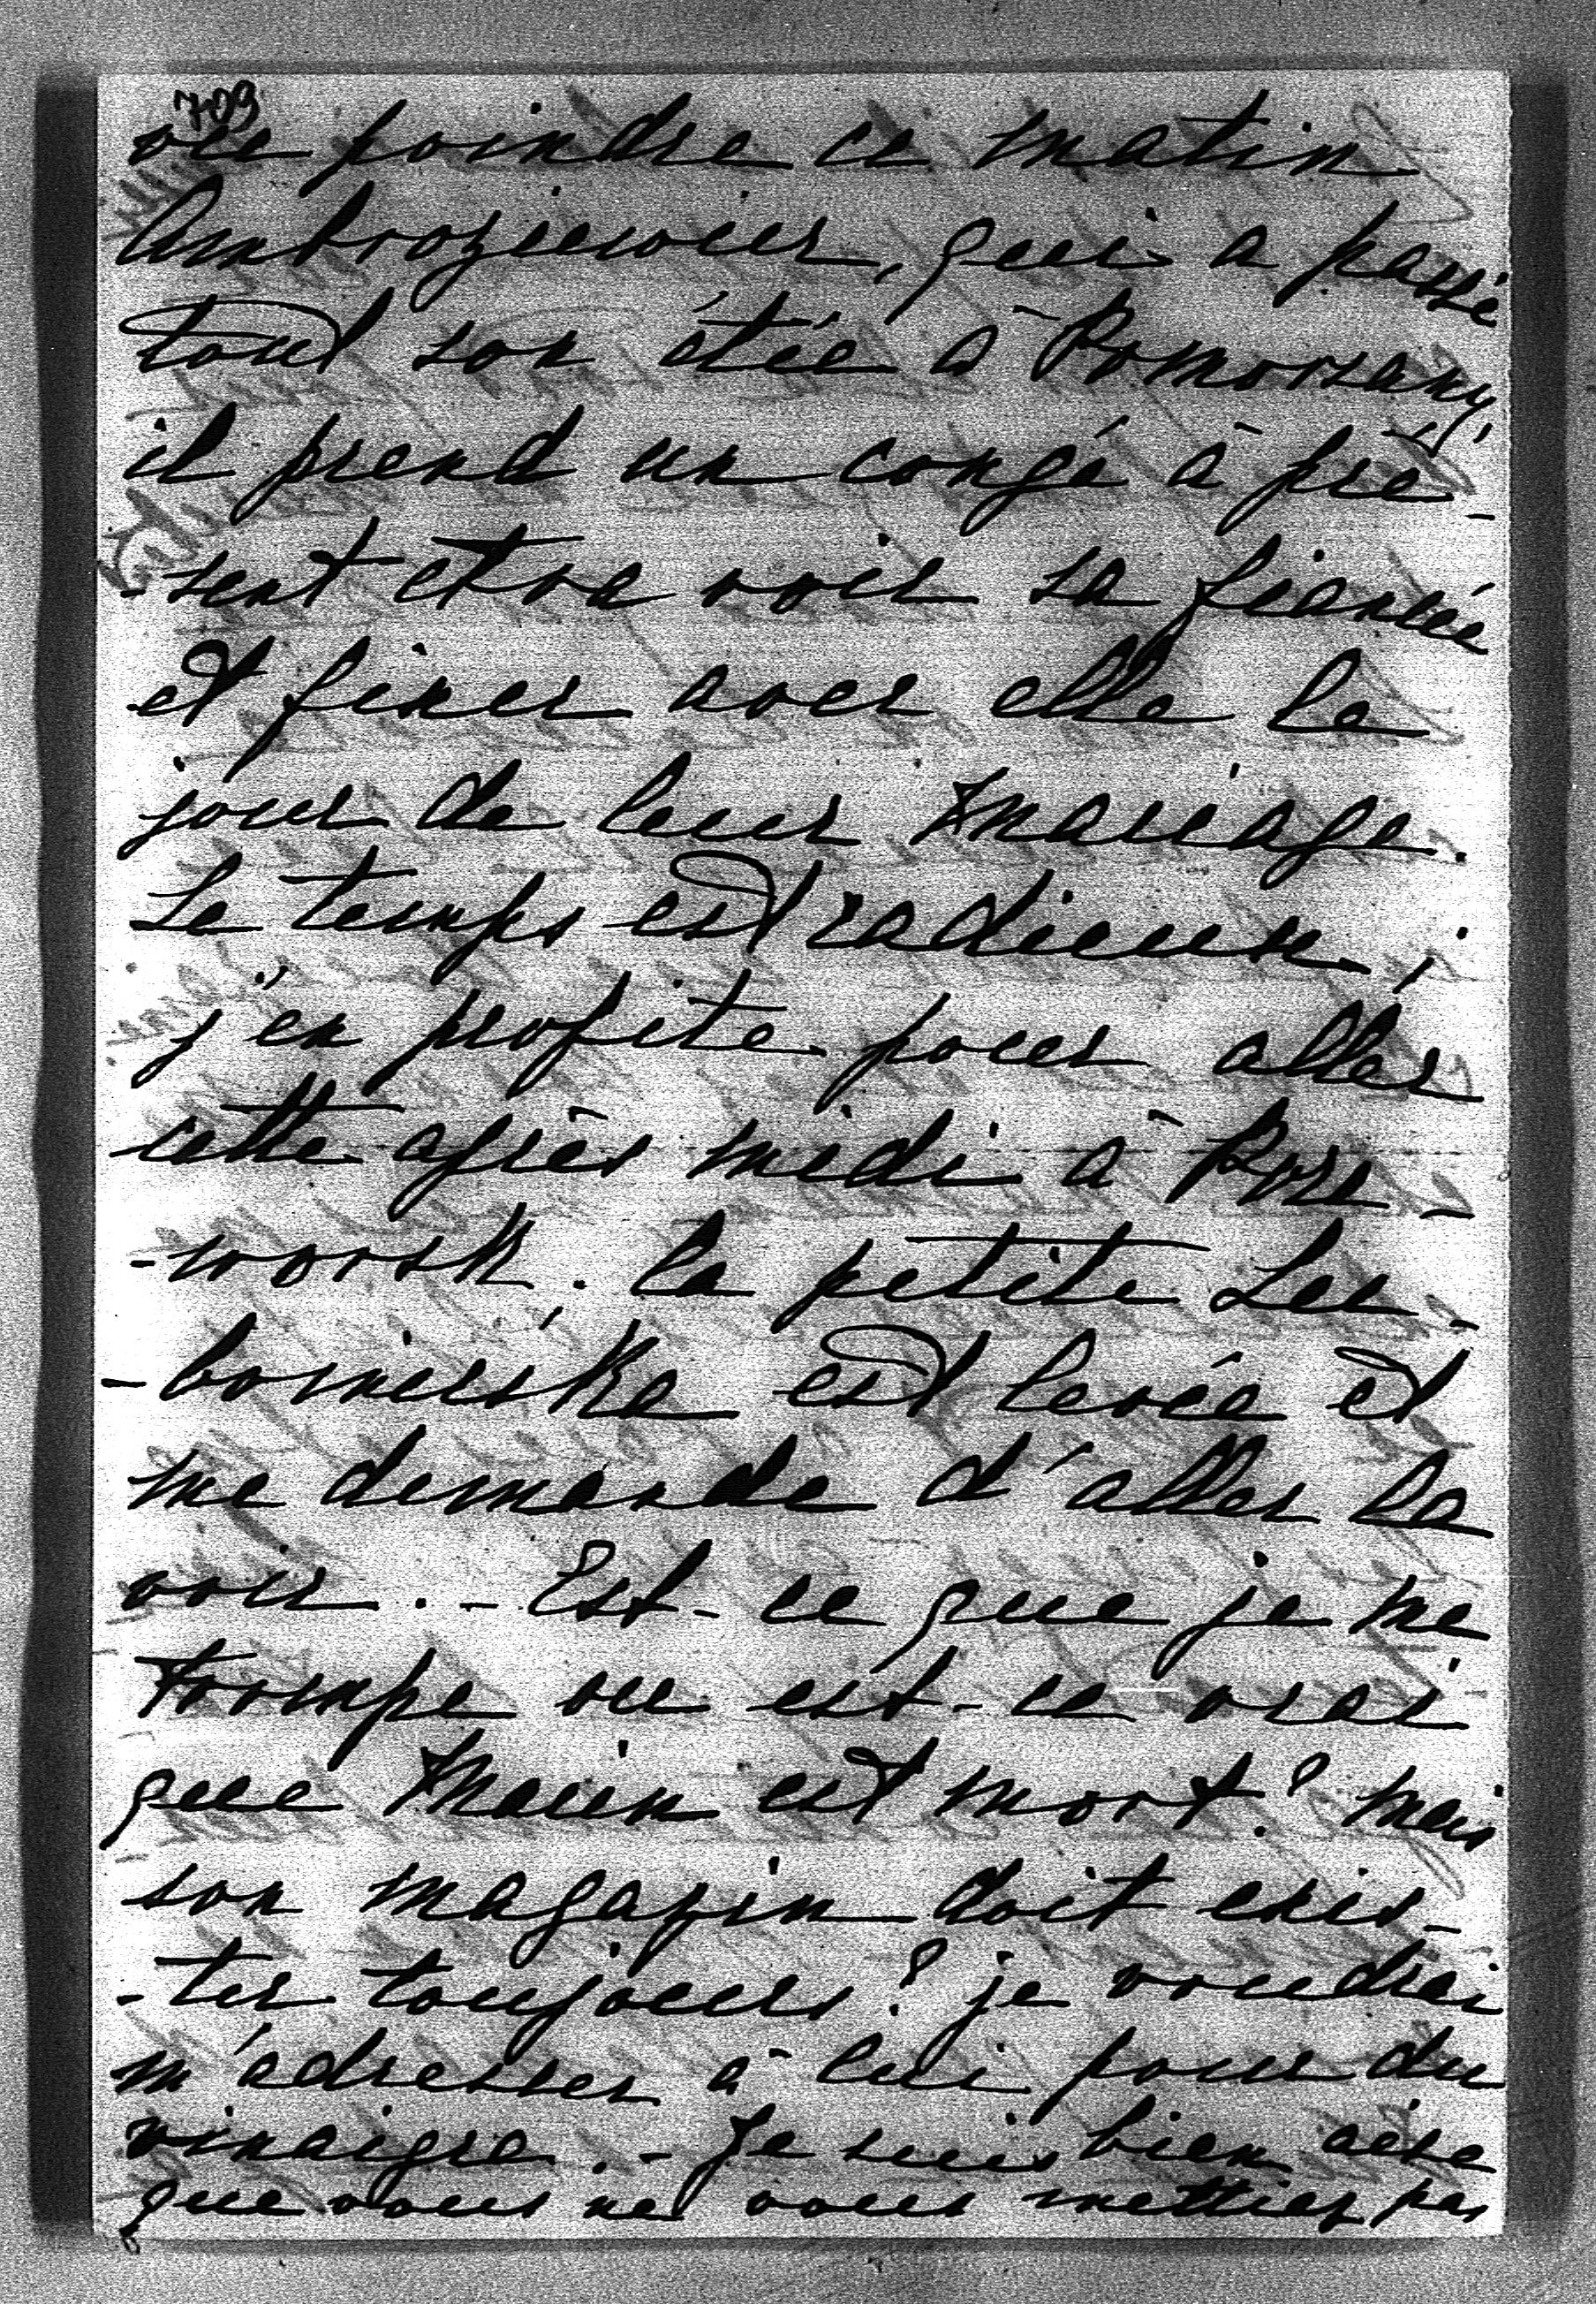 709
vu poindre ce matin
Ambroziewicz, qui a passé
tout son étée à Pomorzany,
il prend un congé à pré-
-sent et va voir sa fiancée
et fixer avec elle le
jour de leur mariage.
Le temps est radieux,
j'en profite pour aller
cette après midi à Prze-
-worsk. la petite Lu-
-bomirska est levée et
me demande d'aller la
voir. - Est-ce que je me
trompe ou est-ce vrai
que est mort? mais
son magazin doit exis-
-ter toujours? je voudrai
m'adresser à lui pour du
vinaigre. - Je suis bien aise
que vous ne vous mettiez pas